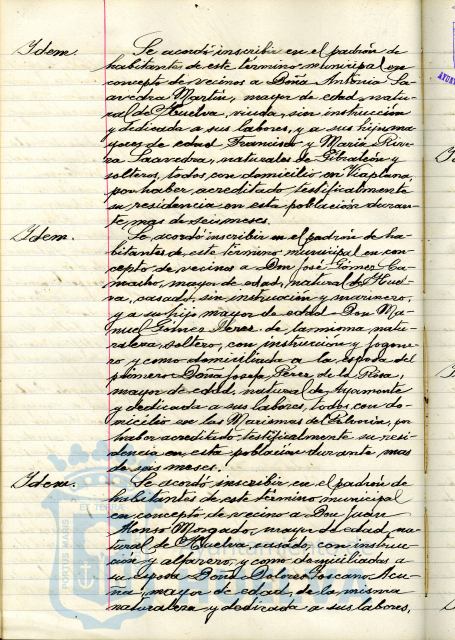 Idem. Se acordó inscribir en el padrón de
habitantes de este término municipal en
concepto de vecinos a Doña Antonia Sa-
avedra Martín, mayor de edad, natu-
ral de Huelva, viuda, sin instrucción
y dedicada a sus labores, y a sus hijos ma-
yores de edad Francisco y María Rive-
ra Saavedra, naturales de Gibraleón y
solteros, todos con domicilio en Viaplana,
por haber acreditado testificalmente
su residencia en esta población duran-
te mas de seis meses.
Idem. Se acordó inscribir en el padrón de ha-
bitantes de este término municipal en con-
cepto de vecinos a Don José Gómez Ca-
macho, mayor de edad, natural de Huel-
va, casado, sin instrucción y marinero,
y a su hijo mayor de edad Don Ma-
nuel Gómez Perez de la misma natu-
raleza, soltero, con instrucción y fogone-
ro y como domiciliada a la esposa del
primero Doña Josefa Pérez de la Rosa,
mayor de edad, natural de Ayamonte
y dedicada a sus labores, todos con do-
micilio en las Marismas del Polvorín, por
haber acreditado testificalmente su resi-
dencia en esta población durante mas
de seis meses.
Idem. Se acordó inscribir en el padrón de
habitantes de este término municipal
en concepto de vecino a Don Juan
Alonso Morgado, mayor de edad, na-
tural de Huelva, casado, con instruc-
ción y alfarero, y como domiciliadas a
su esposa Doña Dolores Toscano Acu-
ña, mayor de edad, de la misma
naturaleza y dedicada a sus labores,
PORTUS MARIS
ET TERRÆ
Ayuntamiento de
HUELVA